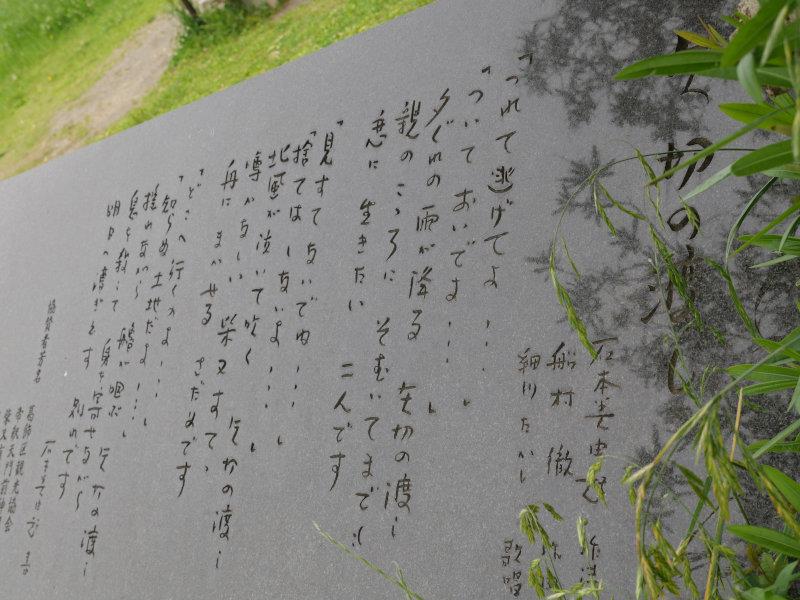 矢切の渡し
石本美由起 作詩
船村 徹 作曲
細川たかし 歌唱
「つれて逃げてよ・・・」
「ついておいでよ・・・」
夕ぐれの雨が降る 矢切の渡し
親のこゝろに そむいてまでも
恋に 生きたい 二人です
「見すてないでね・・・」
「捨てはしないよ・・・」
北風が泣いて吹く 矢切の渡し
噂かなしい 柴又すてゝ
舟にまかせる さだめです
「どこへ行くのよ・・・」
「知らぬ土地だよ・・・」
揺れながら 艪が咽ぶ 矢切の渡し
息を殺して 身を寄せながら
明日へ漕ぎだす 別れです
石本美由起 書
協賛者芳名
葛飾区観光協会